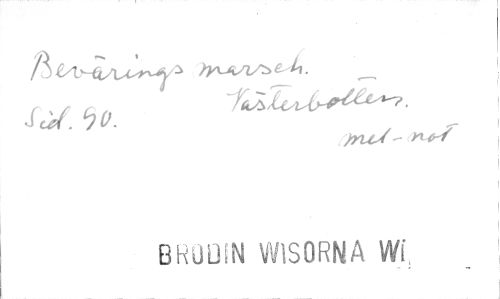 Bevärings marsch.
Västerbotten.
Sid. 90.
mel-not
BRODIN WISORNA Wi